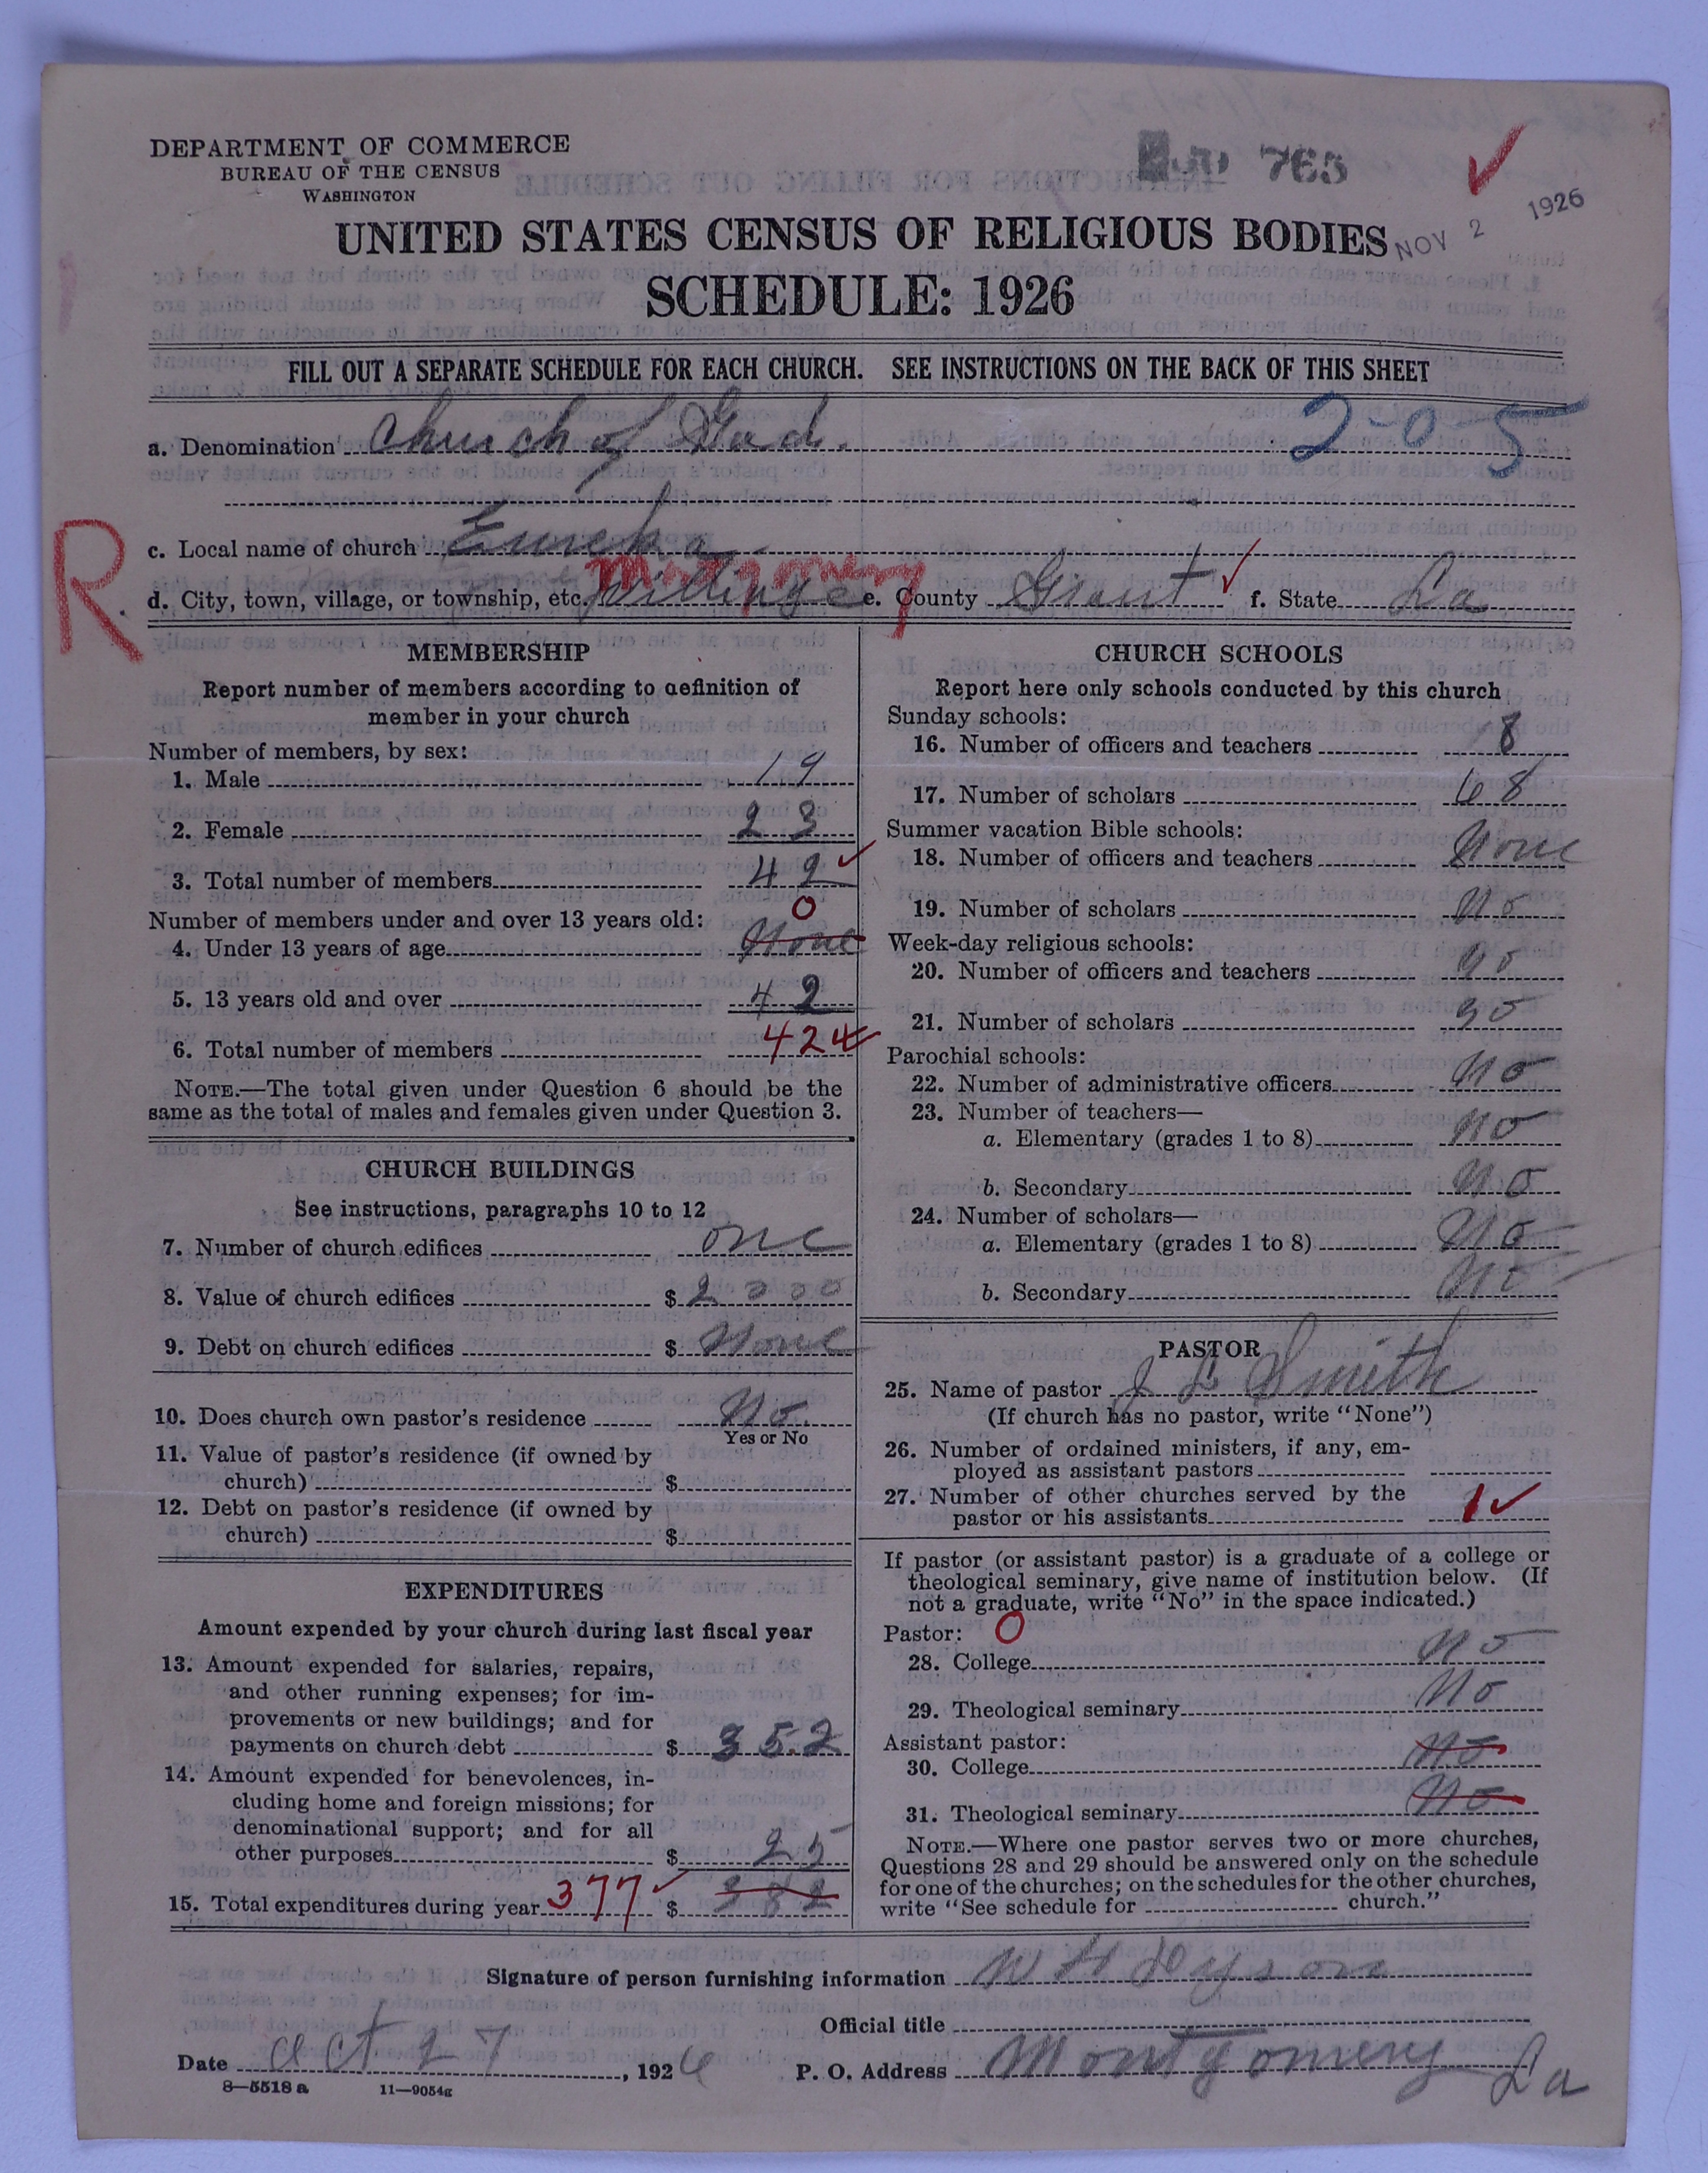 DEPARTMENT OF COMMERCE
BUREAU OF THE CENSUS
WASHINGTON
765
NOV 2 1926
UNITED STATES CENSUS OF RELIGIOUS BODIES
SCHEDULE: 1926
FILL OUT A SEPARATE SCHEDULE FOR EACH CHURCH. SEE INSTRUCTIONS ON THE BACK OF THIS SHEET
a. Denomination Church of God. 2-0-5
c. Local name of church Eureka
R
Montgomery
d. City, town, village, or township, etc. e. County Grant f. State La
MEMBERSHIP
Report number of members according to definition of
member in your church
Number of members, by sex:
1. Male 19
2. Female 23
3. Total number of members 42
Number of members under and over 13 years old: 0
4. Under 13 years of age None
5. 13 years old and over 42
6. Total number of members 42
NOTE.—The total given under Question 6 should be the
same as the total of males and females given under Question 3.
CHURCH BUILDINGS
See instructions, paragraphs 10 to 12
7. Number of church edifices one
8. Value of church edifices $ 2000
9. Debt on church edifices $ None
10. Does church own pastor's residence No.
Yes or No
11. Value of pastor's residence (if owned by
church) $
12. Debt on pastor's residence (if owned by
church) $
EXPENDITURES
Amount expended by your church during last fiscal year
13. Amount expended for salaries, repairs,
and other running expenses; for im-
provements or new buildings; and for
payments on church debt $ 352
14. Amount expended for benevolences, in-
cluding home and foreign missions; for
denominational support; and for all
other purposes $ 25
15. Total expenditures during year 377 $ 382
CHURCH SCHOOLS
Report here only schools conducted by this church
Sunday schools:
16. Number of officers and teachers 8
17. Number of scholars 68
Summer vacation Bible schools:
18. Number of officers and teachers None
19. Number of scholars No
Week-day religious schools:
20. Number of officers and teachers No
21. Number of scholars No
Parochial schools:
22. Number of administrative officers No
23. Number of teachers—
a. Elementary (grades 1 to 8) No
b. Secondary No
24. Number of scholars—
a. Elementary (grades 1 to 8) No
b. Secondary No
PASTOR
25. Name of pastor J L Smith
(If church has no pastor, write "None")
26. Number of ordained ministers, if any, em-
ployed as assistant pastors
27. Number of other churches served by the
pastor or his assistants 1
If pastor (or assistant pastor) is a graduate of a college or
theological seminary, give name of institution below. (If
not a graduate, write "No" in the space indicated.)
Pastor: 0
28. College No
29. Theological seminary No
Assistant pastor:
30. College No
31. Theological seminary No
NOTE.—Where one pastor serves two or more churches,
Questions 28 and 29 should be answered only on the schedule
for one of the churches; on the schedules for the other churches,
write "See schedule for church."
Signature of person furnishing information W H Dyson
Official title
Date Oct 27, 1926 P. O. Address Montgomery La
8—5518 a 11—9054g